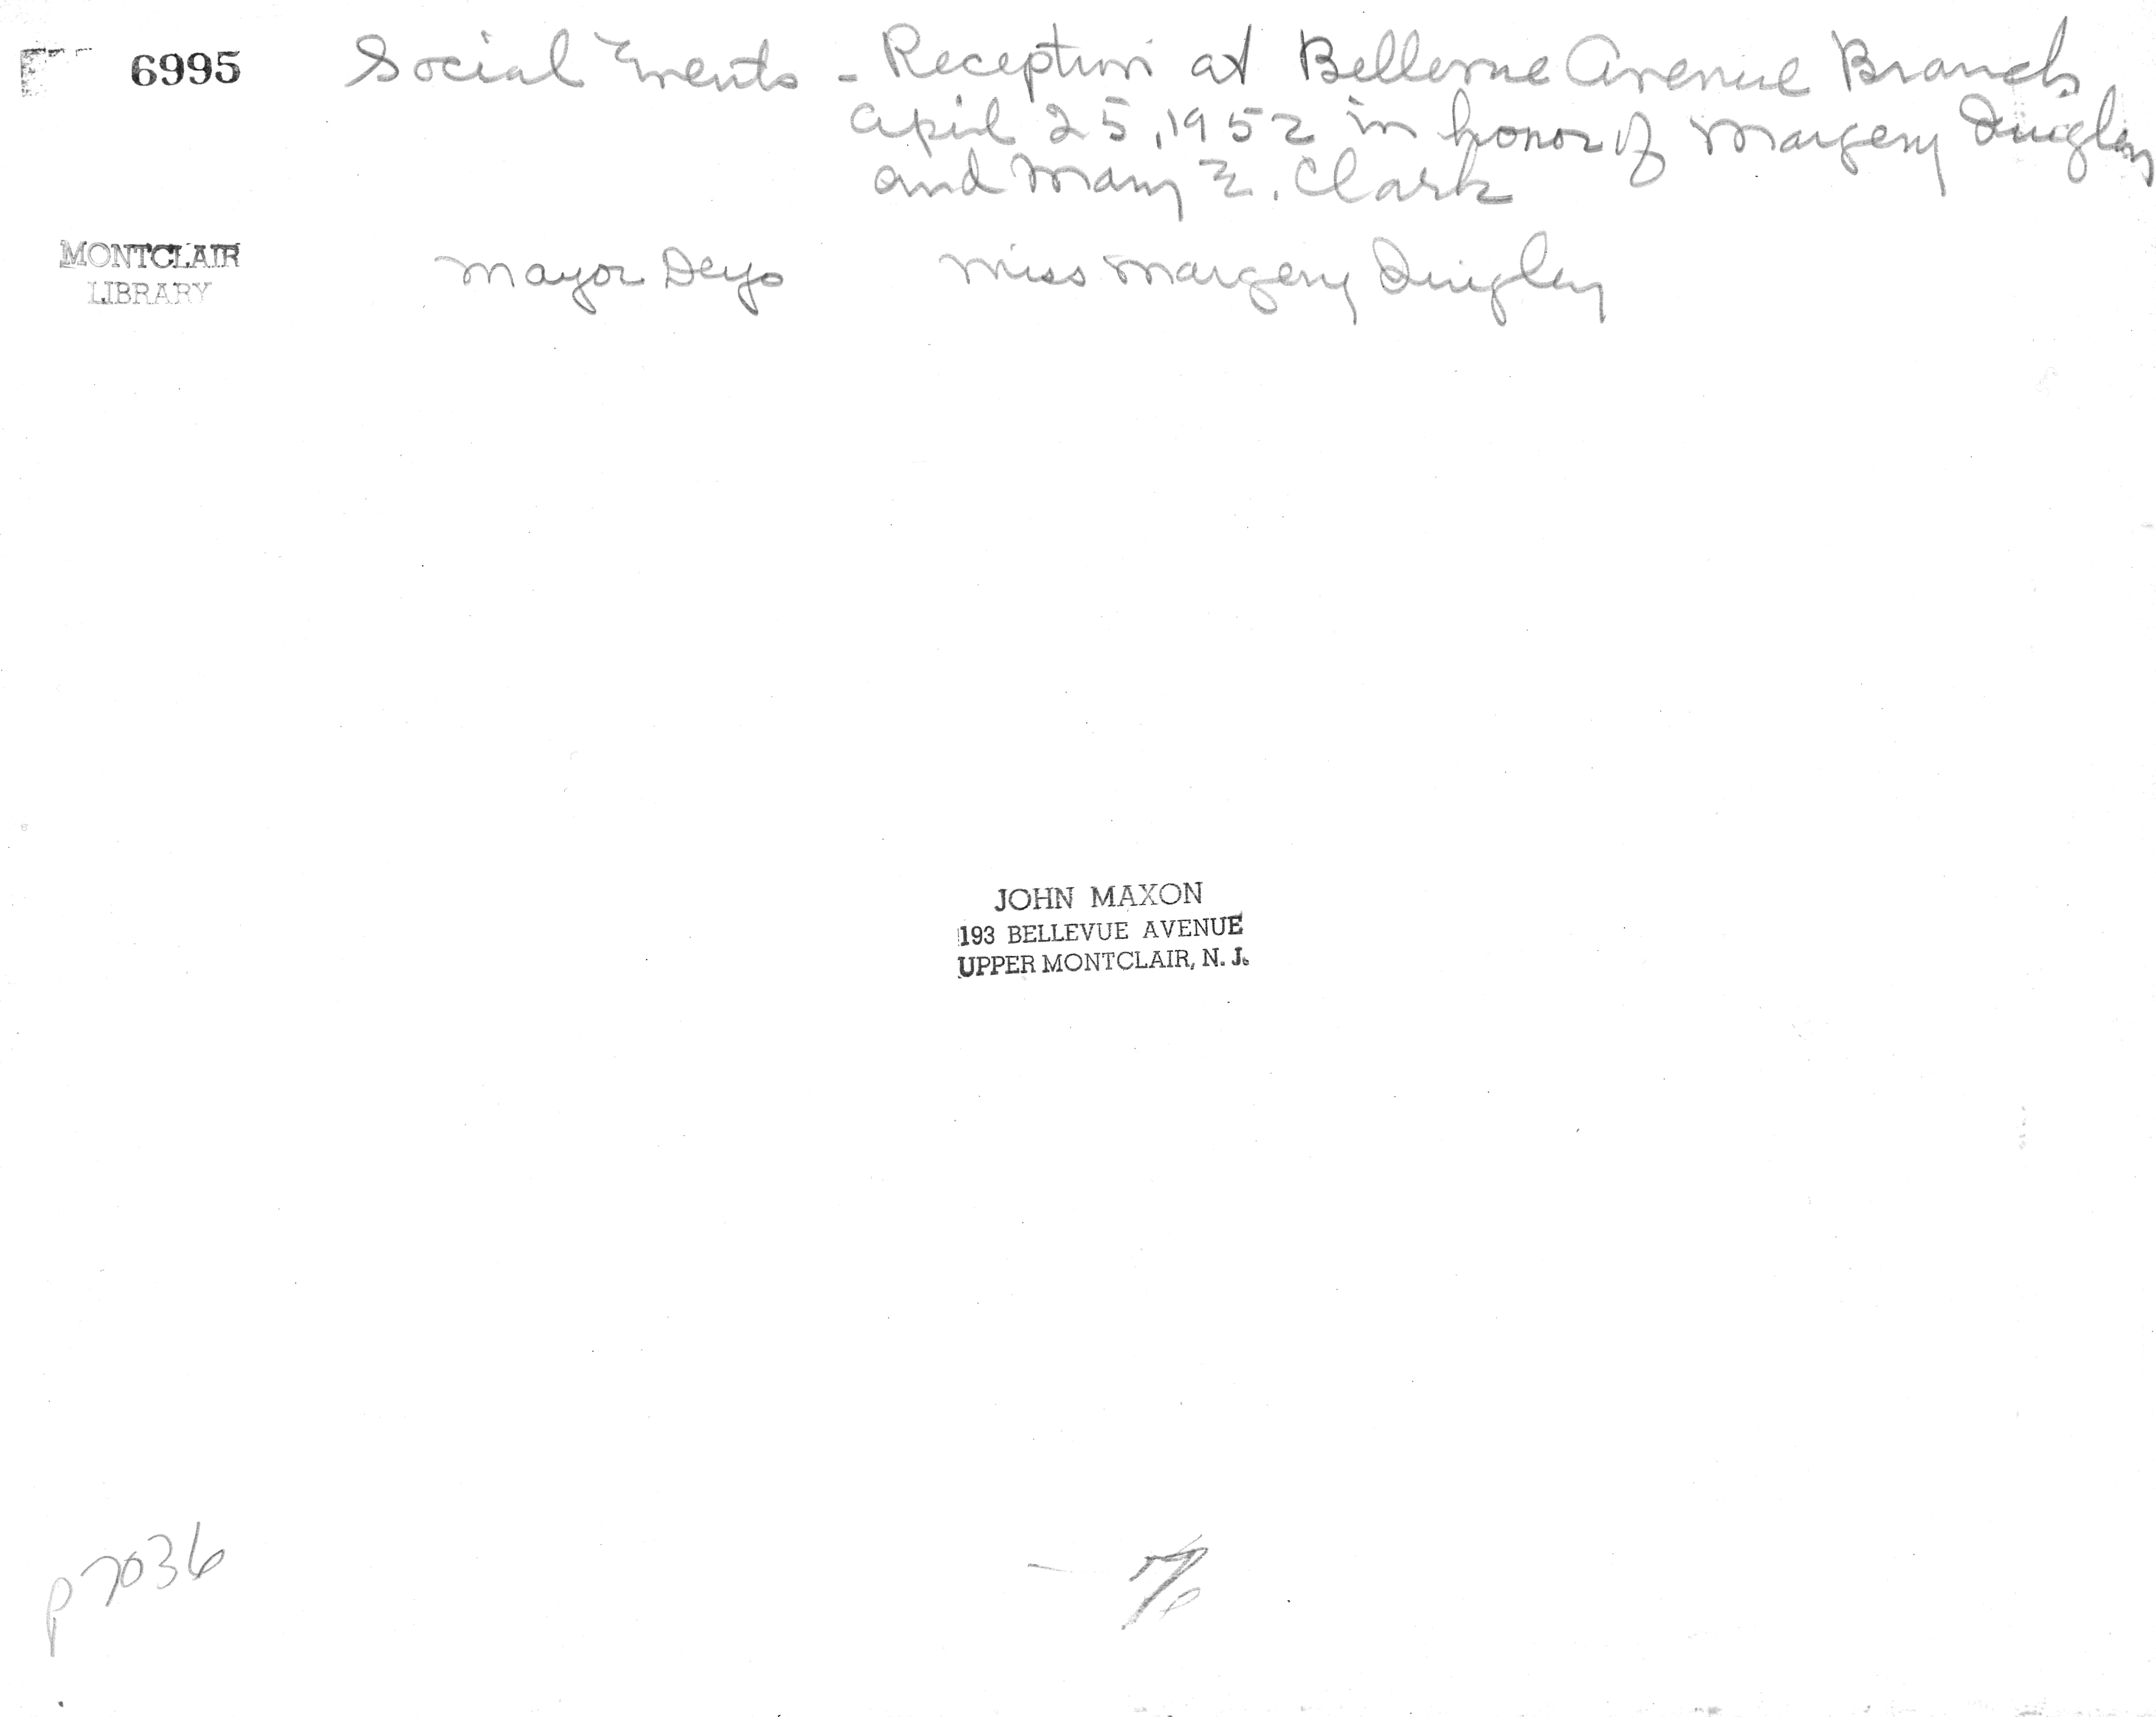 6995 Social Events - Reception at Bellevue Avenue Branch
April 25, 1952 in honor of Margery Quigley
and Mary E. Clark
MONTCLAIR
LIBRARY
Mayor Deyo Miss Margery Quigley
JOHN MAXON
193 BELLEVUE AVENUE
UPPER MONTCLAIR, N. J.
p7036